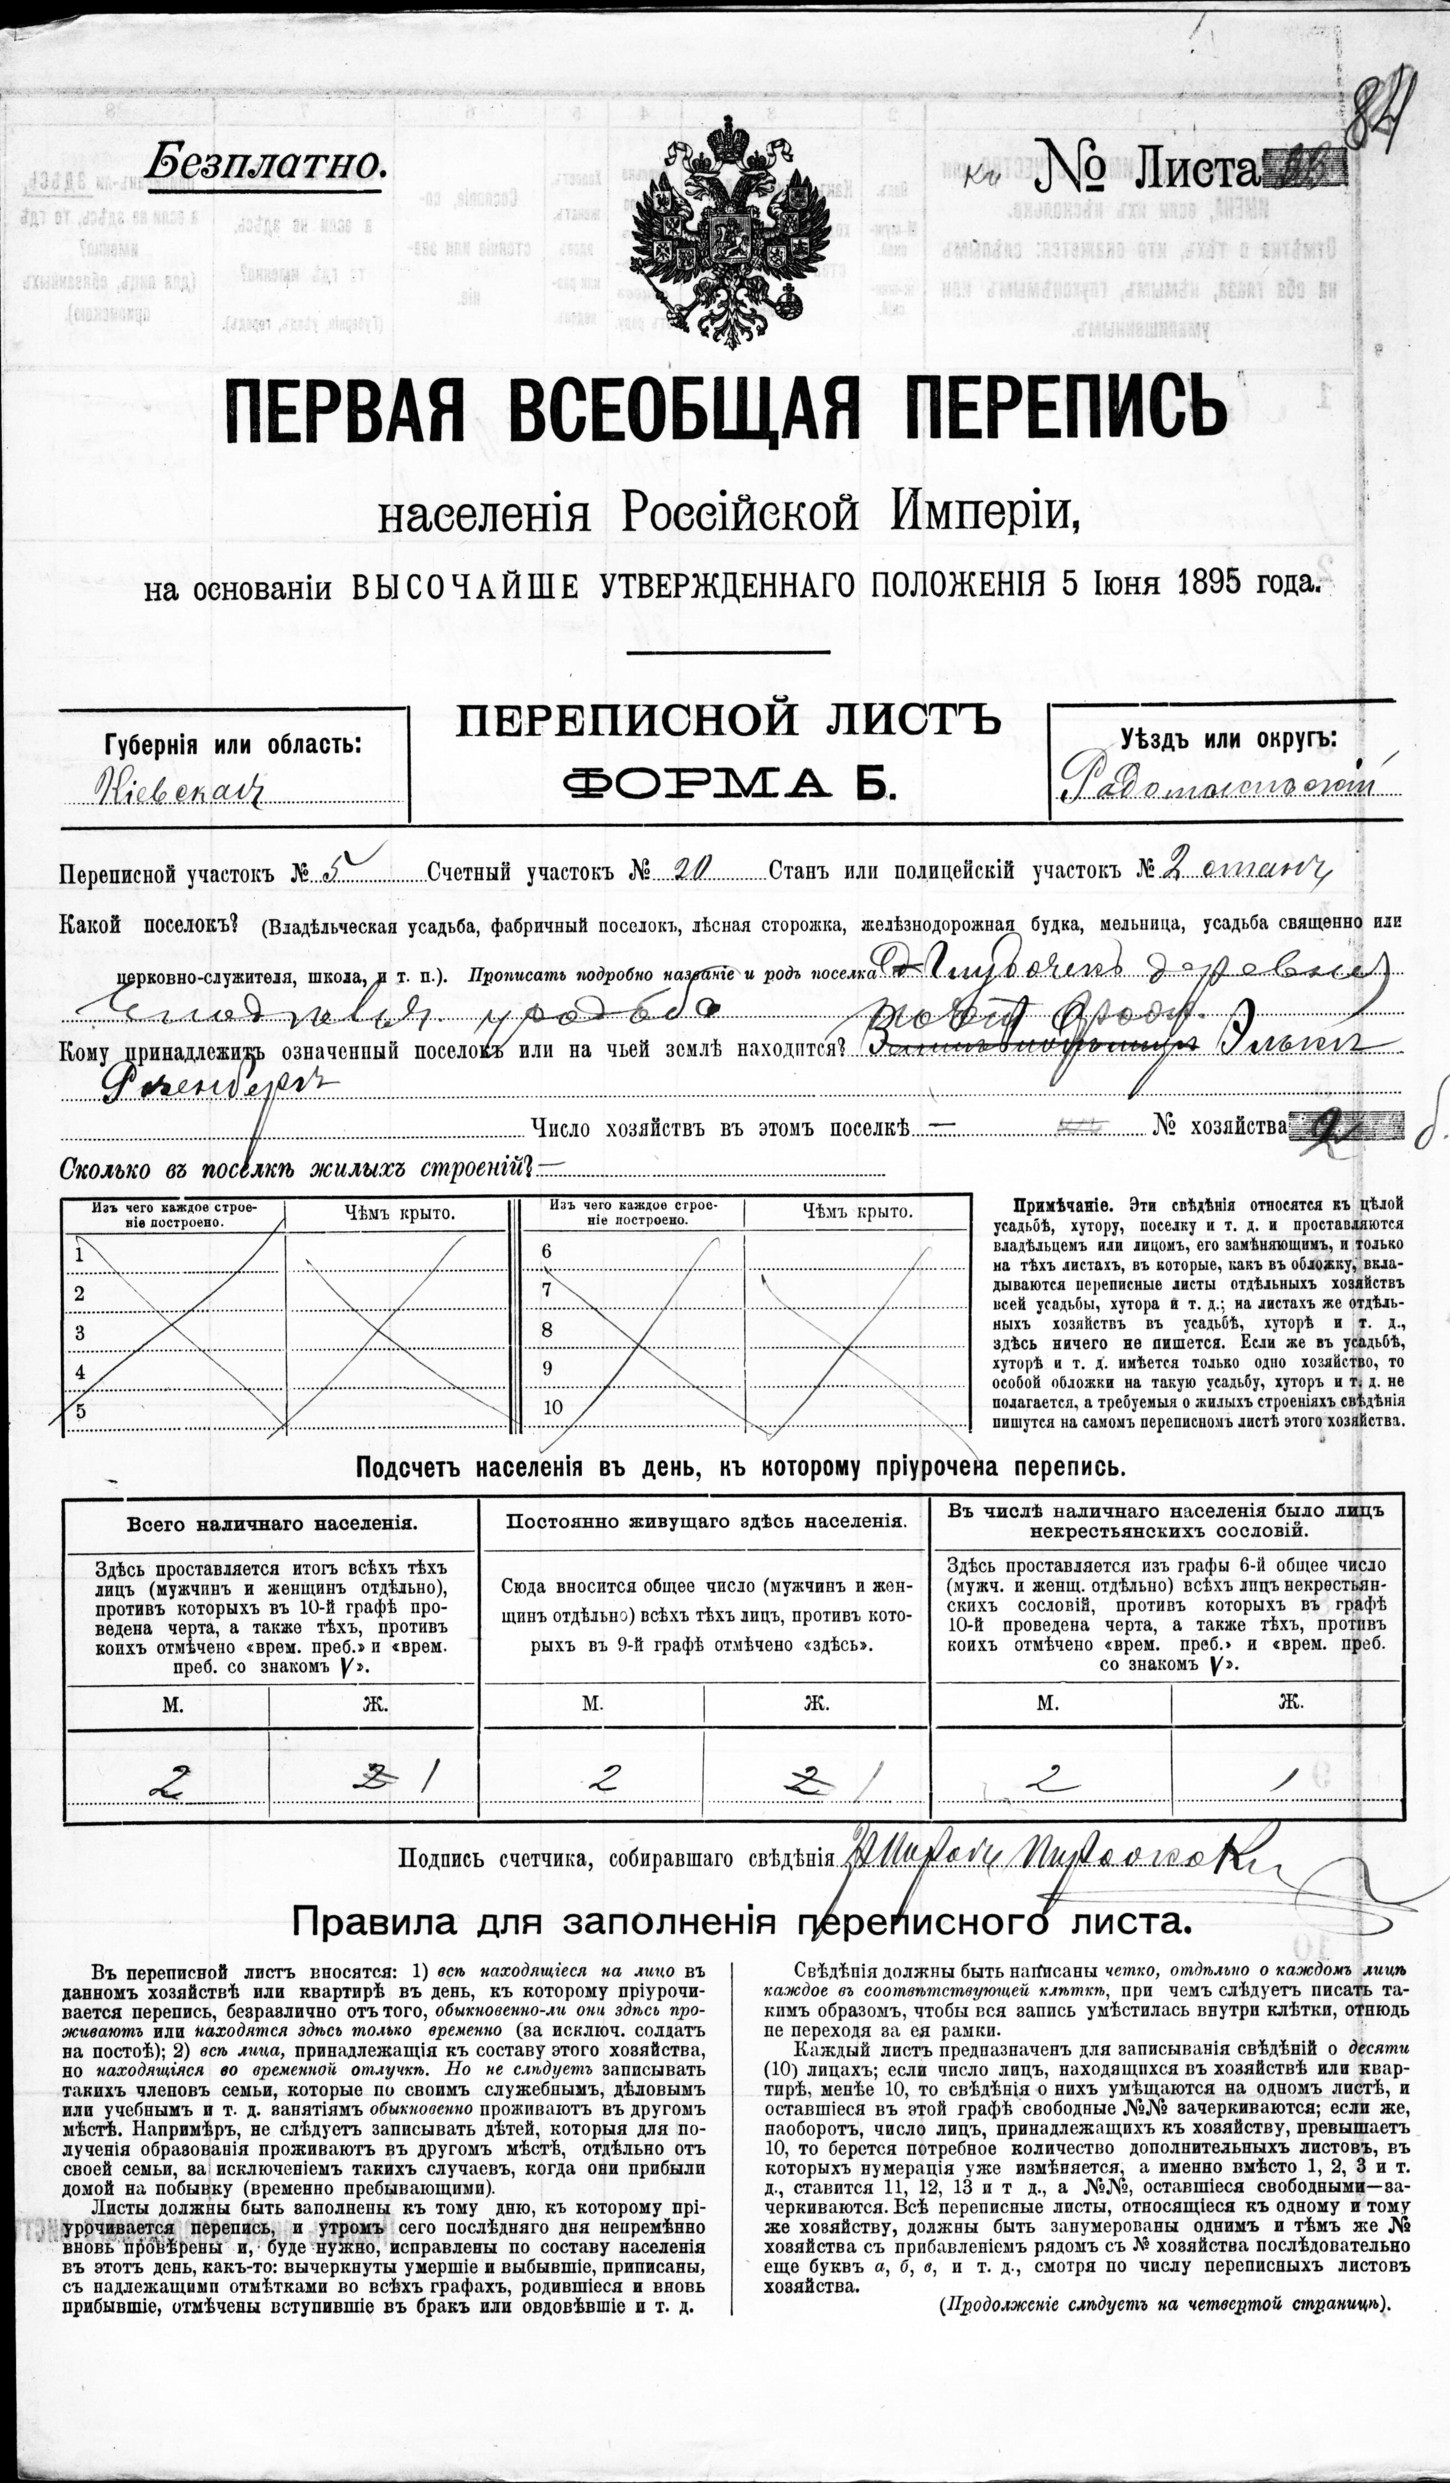 84
Безплатно.
№ Листа
ПЕРВАЯ ВСЕОБЩАЯ ПЕРЕПИСЬ
населенія Россійской Имперіи,
на основаніи ВЫСОЧАЙШЕ УТВЕРЖДЕННАГО ПОЛОЖЕНІЯ 5 Іюня 1895 года.
ПЕРЕПИСНОЙ ЛИСТЪ
ФОРМА Б.
Губернія или область:
Кіевская
Уѣздъ или округъ:
Радомысльскій
Переписной участокъ № 5 Счетный участокъ № 20 Станъ или полицейскій участокъ № 2 станъ
Какой поселокъ? (Владѣльческая усадьба, фабричный поселокъ, лѣсная сторожка, желѣзнодорожная будка, мельница, усадьба священно или
церковно-служителя, школа, и т. п.). Прописать подробно названіе и родъ поселка
усадьба
Кому принадлежитъ означенный поселокъ или на чьей землѣ находится?
Число хозяйствъ въ этомъ поселкѣ — № хозяйства 2 б.
Сколько въ поселкѣ жилыхъ строеній? —
Изъ чего каждое строе-
ніе построено.
Чѣмъ крыто.
Изъ чего каждое строе-
ніе построено.
Чѣмъ крыто.
1
2
3
4
5
6
7
8
9
10
Примѣчаніе. Эти свѣдѣнія относятся къ цѣлой
усадьбѣ, хутору, поселку и т. д. и проставляются
владѣльцемъ или лицомъ, его замѣняющимъ, и только
на тѣхъ листахъ, въ которые, какъ въ обложку, вкла-
дываются переписные листы отдѣльныхъ хозяйствъ
всей усадьбы, хутора и т. д.; на листахъ же отдѣль-
ныхъ хозяйствъ въ усадьбѣ, хуторѣ и т. д.,
здѣсь ничего не пишется. Если же въ усадьбѣ,
хуторѣ и т. д. имѣется только одно хозяйство, то
особой обложки на такую усадьбу, хуторъ и т. д. не
полагается, а требуемыя о жилыхъ строеніяхъ свѣдѣнія
пишутся на самомъ переписномъ листѣ этого хозяйства.
Подсчетъ населенія въ день, къ которому пріурочена перепись.
Всего наличнаго населенія.
Здѣсь проставляется итогъ всѣхъ тѣхъ
лицъ (мужчинъ и женщинъ отдѣльно),
противъ которыхъ въ 10-й графѣ про-
ведена черта, а также тѣхъ, противъ
коихъ отмѣчено «врем. преб.» и «врем.
преб. со знакомъ V».
М. Ж.
2 2 1
Постоянно живущаго здѣсь населенія.
Сюда вносится общее число (мужчинъ и жен-
щинъ отдѣльно) всѣхъ тѣхъ лицъ, противъ кото-
рыхъ въ 9-й графѣ отмѣчено «здѣсь».
М. Ж.
2 2 1
Въ числѣ наличнаго населенія было лицъ
некрестьянскихъ сословій.
Здѣсь проставляется изъ графы 6-й общее число
(мужч. и женщ. отдѣльно) всѣхъ лицъ некрестьян-
скихъ сословій, противъ которыхъ въ графѣ
10-й проведена черта, а также тѣхъ, противъ
коихъ отмѣчено «врем. преб.» и «врем. преб.
со знакомъ V».
М. Ж.
2 1
Подпись счетчика, собиравшаго свѣдѣнія
Правила для заполненія переписного листа.
Въ переписной листъ вносятся: 1) всѣ находящіеся на лицо въ
данномъ хозяйствѣ или квартирѣ въ день, къ которому пріурочи-
вается перепись, безразлично отъ того, обыкновенно-ли они здѣсь про-
живаютъ или находятся здѣсь только временно (за исключ. солдатъ
на постоѣ); 2) всѣ лица, принадлежащія къ составу этого хозяйства,
но находящіяся во временной отлучкѣ. Но не слѣдуетъ записывать
такихъ членовъ семьи, которые по своимъ служебнымъ, дѣловымъ
или учебнымъ и т. д. занятіямъ обыкновенно проживаютъ въ другомъ
мѣстѣ. Напримѣръ, не слѣдуетъ записывать дѣтей, которыя для по-
лученія образованія проживаютъ въ другомъ мѣстѣ, отдѣльно отъ
своей семьи, за исключеніемъ такихъ случаевъ, когда они прибыли
домой на побывку (временно пребывающими).
Листы должны быть заполнены къ тому дню, къ которому прі-
урочивается перепись, и утромъ сего послѣдняго дня непремѣнно
вновь провѣрены и, буде нужно, исправлены по составу населенія
въ этотъ день, какъ-то: вычеркнуты умершіе и выбывшіе, приписаны,
съ надлежащими отмѣтками во всѣхъ графахъ, родившіеся и вновь
прибывшіе, отмѣчены вступившіе въ бракъ или овдовѣвшіе и т. д.
Свѣдѣнія должны быть написаны четко, отдѣльно о каждомъ лицѣ
каждое въ соотвѣтствующей клѣткѣ, при чемъ слѣдуетъ писать та-
кимъ образомъ, чтобы вся запись умѣстилась внутри клѣтки, отнюдь
не переходя за ея рамки.
Каждый листъ предназначенъ для записыванія свѣдѣній о десяти
(10) лицахъ; если число лицъ, находящихся въ хозяйствѣ или квар-
тирѣ, менѣе 10, то свѣдѣнія о нихъ умѣщаются на одномъ листѣ, и
оставшіеся въ этой графѣ свободные №№ зачеркиваются; если же,
наоборотъ, число лицъ, принадлежащихъ къ хозяйству, превышаетъ
10, то берется потребное количество дополнительныхъ листовъ, въ
которыхъ нумерація уже измѣняется, а именно вмѣсто 1, 2, 3 и т.
д., ставится 11, 12, 13 и т д., а №№, оставшіеся свободными—за-
черкиваются. Всѣ переписные листы, относящіеся къ одному и тому
же хозяйству, должны быть занумерованы однимъ и тѣмъ же №
хозяйства съ прибавленіемъ рядомъ съ № хозяйства послѣдовательно
еще буквъ а, б, в, и т. д., смотря по числу переписныхъ листовъ
хозяйства.
(Продолженіе слѣдуетъ на четвертой страницѣ).